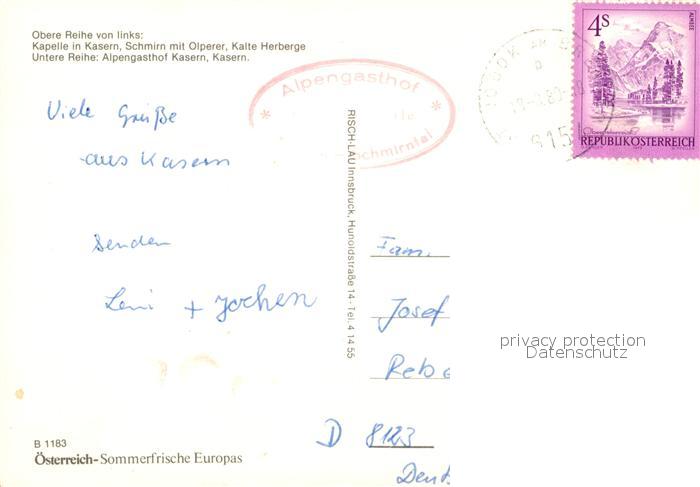 Obere Reihe von links:
Kapelle in Kasern, Schmirn mit Olperer, Kalte Herberge
Untere Reihe: Alpengasthof Kasern, Kasern.
Viele Grüße
aus Kasern
senden
Leni + Jochen
B 1183
Österreich-Sommerfrische Europas
Alpengasthof
RISCH-LAU Innsbruck, Hunoldstraße 14 - Tel. 4 14 55
4S
ALMSEE
REPUBLIK ÖSTERREICH
Fam.
Josef
privacy protection
Datenschutz
D 8123